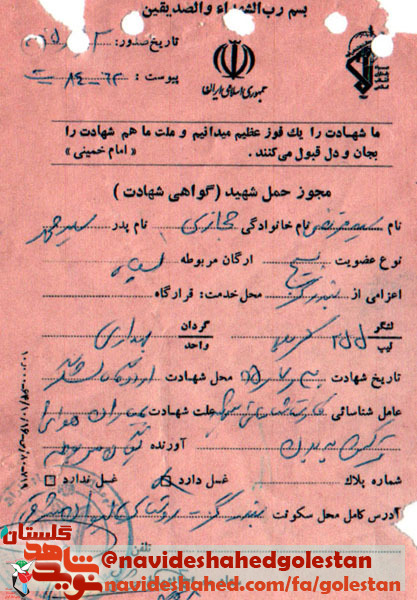 بسم رب الشهداء والصدیقین
تاریخ صدور:
پیوست:
جمهوری اسلامی ایران
ما شهادت را یك فوز عظیم میدانیم و ملت ما هم شهادت را
بجان و دل قبول می‌کنند. « امام خمینی »
مجوز حمل شهید (گواهی شهادت)
نام سید مرتضی نام خانوادگی حجازی نام پدر سید محمد
نوع عضویت بسیج ارگان مربوطه سپاه
اعزامی از بندرگز محل خدمت: قرارگاه
لشگر ۲۵ کربلا گردان
تیپ واحد بهداری
تاریخ شهادت محل شهادت
عامل شناسائی کارت شناسایی علت شهادت بمباران هوایی
ترکش به بدن آورنده
شماره پلاك غسل دارد غسل ندارد
آدرس کامل محل سکونت بندرگز
تلفن
گلستان
نوید شاهد
@navideshahedgolestan
navideshahed.com/fa/golestan